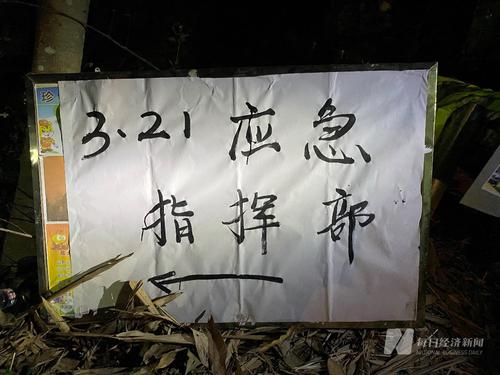 珍
3.21应急
指挥部
每日经济新闻
NATIONAL BUSINESS DAILY